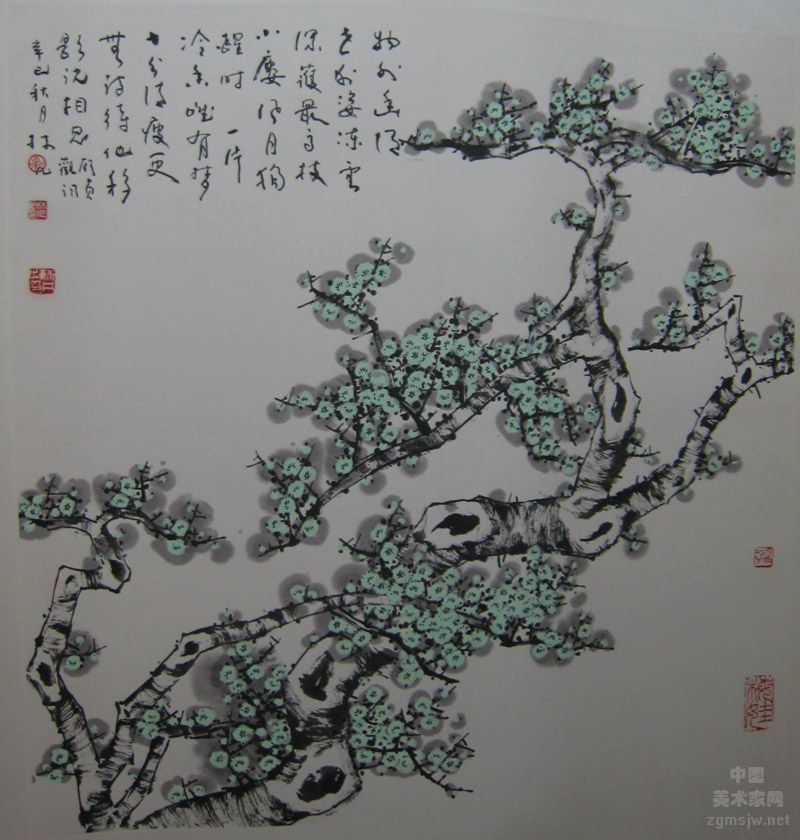 物外幽情
世外姿冻云
深護最高枝
小廔风月独
醒时一片
冷香唯有梦
十分清瘦更
無诗待他移
影说相思 顾贞
觀词
辛巳秋月林凡
中国
美术家网
zgmsjw.net